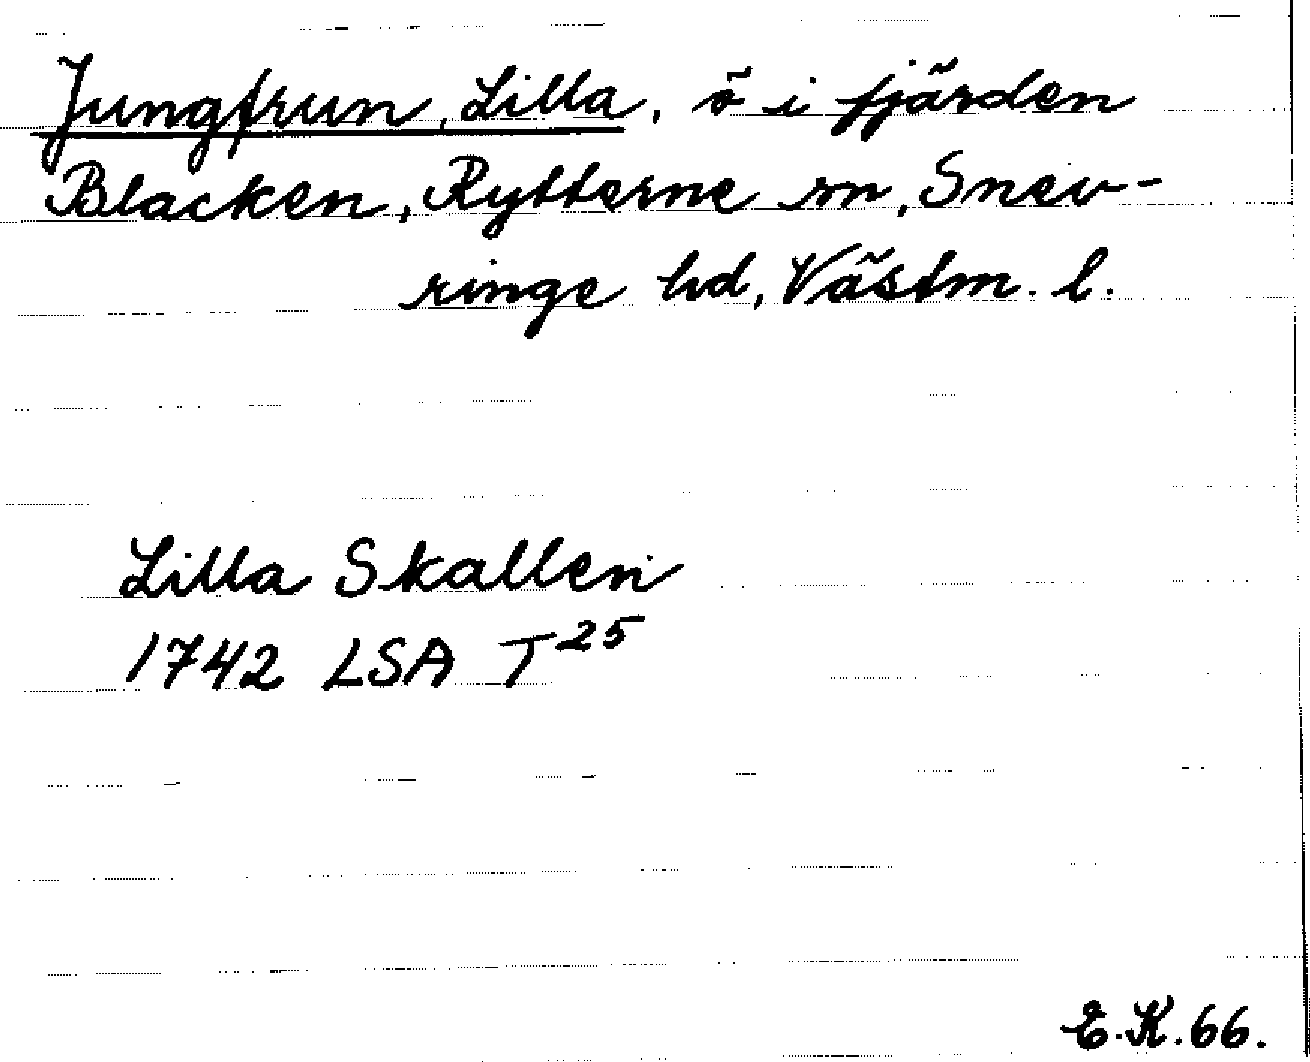 Jungfrun, Lilla, ö i fjärden
Blacken, Rytterne sn, Snev-
ringe hd, Västm. l.
Lilla Skallen
1742 LSA T25
E.K.66.